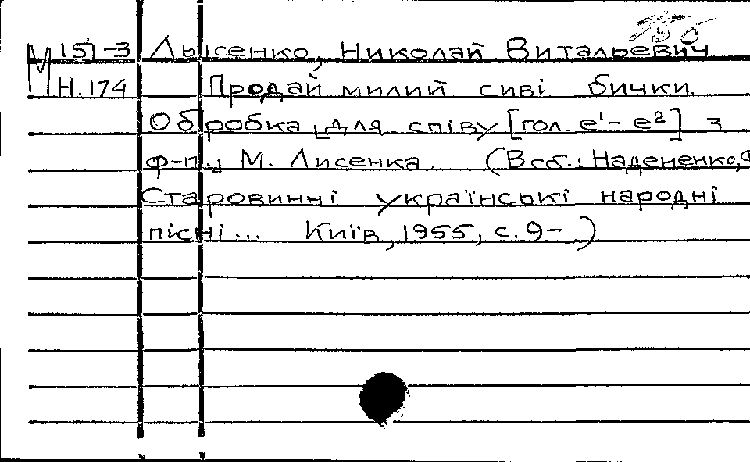 М 151-3 Лысенко, Николай Витальевич
Н.174 Продай милий сиві бички.
Обробка [для співу [гол. e¹- e²] з
ф-п.] М. Лисенка. (В сб.: Надененко,Ф
Старовинні українські народні
пісні... Київ, 1955, с.9- )